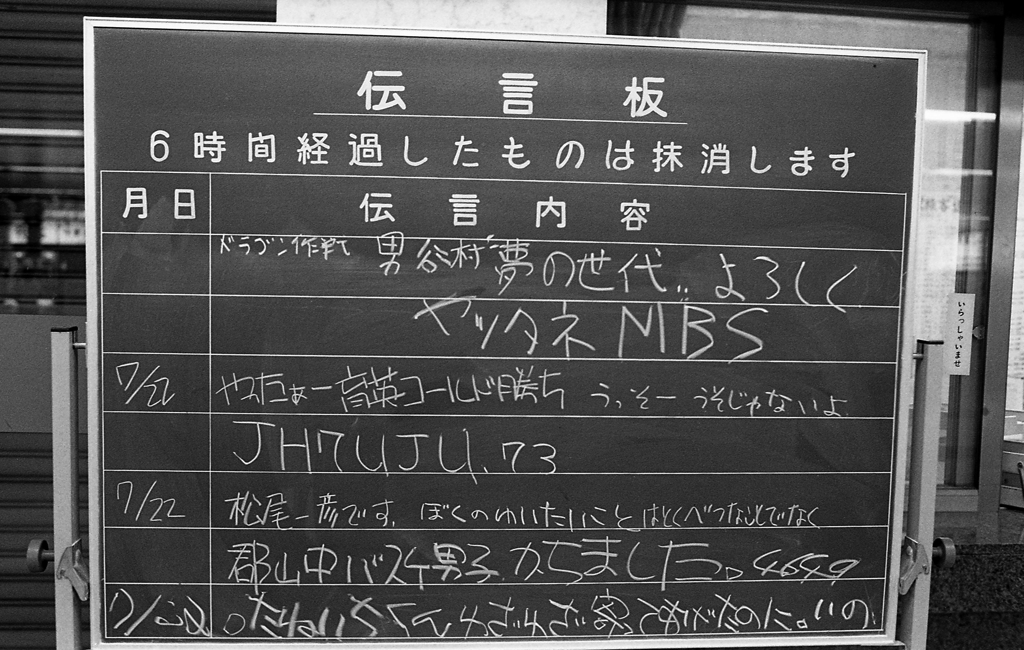 伝言板
6時間経過したものは抹消します
月日 伝言内容
ドラゴン作戦 男谷村 夢の世代.. よろしく
ヤッタネ MBS
7/22 やったぁー育英コールド勝ち うっそー うそじゃないよ
JH7UJU. 73
7/22 松尾一彦です。ぼくのゆいたいことはとくべつなことでなく
郡山中バスケ男子かちました。4649
いらっしゃいませ